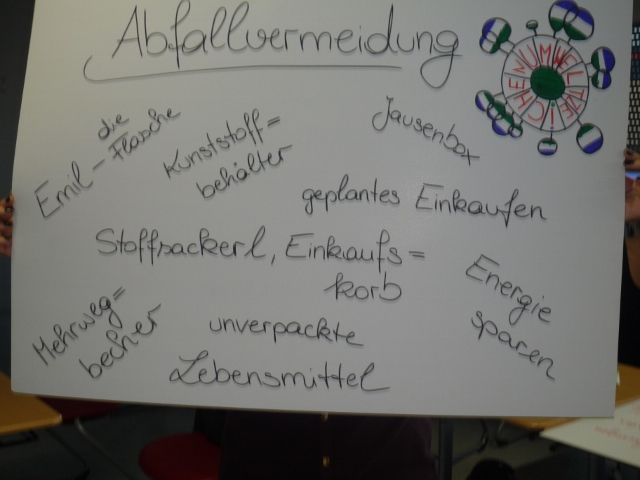 Abfallvermeidung
UMWELTZEICHEN
Emil – die
Flasche
Kunststoff=
behälter
Jausenbox
geplantes Einkaufen
Stoffsackerl, Einkaufs=
korb
Energie
sparen
Mehrweg=
becher
unverpackte
Lebensmittel